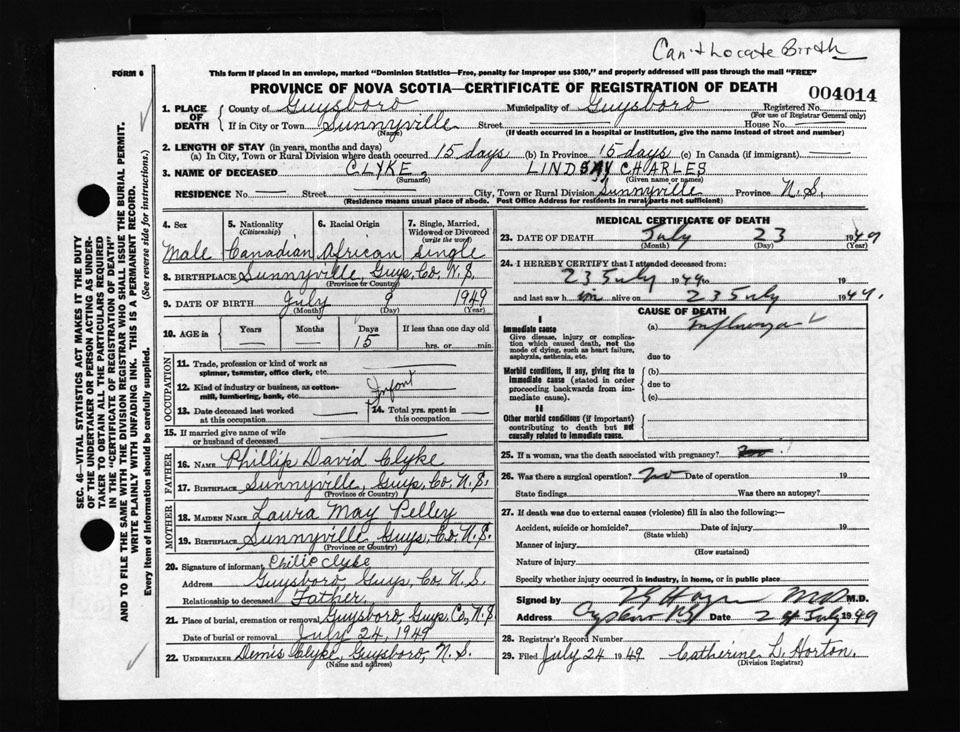 Can't Locate Birth
FORM 6
This form if placed in an envelope, marked "Dominion Statistics—Free, penalty for improper use $300," and properly addressed will pass through the mail "FREE"
PROVINCE OF NOVA SCOTIA—CERTIFICATE OF REGISTRATION OF DEATH
004014
1. PLACE OF DEATH
County of Guysboro Municipality of Guysboro Registered No.
(For use of Registrar General only)
If in City or Town Sunnyville Street House No.
(Name) (If death occurred in a hospital or institution, give the name instead of street and number)
2. LENGTH OF STAY (in years, months and days)
(a) In City, Town or Rural Division where death occurred 15 days (b) In Province 15 days (c) In Canada (if immigrant)
3. NAME OF DECEASED CLYKE, LINDSAY CHARLES
(Surname) (Given name or names)
RESIDENCE No. Street City, Town or Rural Division Sunnyville Province N.S.
(Residence means usual place of abode. Post Office Address for residents in rural parts not sufficient)
4. Sex 5. Nationality (Citizenship) 6. Racial Origin 7. Single, Married, Widowed or Divorced (write the word)
Male Canadian African Single
8. BIRTHPLACE Sunnyville, Guys. Co. N.S.
(Province or Country)
9. DATE OF BIRTH July 9 1949
(Month) (Day) (Year)
10. AGE in Years Months Days If less than one day old
15 hrs. or min.
OCCUPATION
11. Trade, profession or kind of work as spinner, teamster, office clerk, etc.
12. Kind of industry or business, as cotton-mill, lumbering, bank, etc. Infant
13. Date deceased last worked at this occupation
14. Total yrs. spent in this occupation
15. If married give name of wife or husband of deceased
FATHER
16. NAME Phillip David Clyke
17. BIRTHPLACE Sunnyville, Guys. Co. N.S.
(Province or Country)
MOTHER
18. MAIDEN NAME Laura May Pelley
19. BIRTHPLACE Sunnyville Guys. Co. N.S.
(Province or Country)
20. Signature of informant Philip Clyke
Address Guysboro, Guys, Co. N.S.
Relationship to deceased Father.
21. Place of burial, cremation or removal Guysboro, Guys. Co, N.S.
Date of burial or removal July 24, 1949
22. UNDERTAKER Dennis Clyke, Guysboro, N.S.
(Name and address)
MEDICAL CERTIFICATE OF DEATH
23. DATE OF DEATH July 23 1949
(Month) (Day) (Year)
24. I HEREBY CERTIFY that I attended deceased from:
23 July 1949 to 19
and last saw him alive on 23 July 1949.
CAUSE OF DEATH
I
Immediate cause
Give disease, injury or complication which caused death, not the mode of dying, such as heart failure, asphyxia, asthenia, etc.
(a) Influenza
due to
Morbid conditions, if any, giving rise to immediate cause (stated in order proceeding backwards from immediate cause).
(b)
due to
(c)
II
Other morbid conditions (if important) contributing to death but not causally related to immediate cause.
25. If a woman, was the death associated with pregnancy? no
26. Was there a surgical operation? no Date of operation 19
State findings Was there an autopsy?
27. If death was due to external causes (violence) fill in also the following:—
Accident, suicide or homicide? Date of injury 19
(State which)
Manner of injury
(How sustained)
Nature of injury
Specify whether injury occurred in industry, in home, or in public place
Signed by M.D. M.D.
Address Date 24 July 1949
28. Registrar's Record Number
29. Filed July 24 1949 Catherine L. Horton.
(Division Registrar)
SEC. 46—VITAL STATISTICS ACT MAKES IT THE DUTY
OF THE UNDERTAKER OR PERSON ACTING AS UNDER-
TAKER TO OBTAIN ALL THE PARTICULARS REQUIRED
IN THE "CERTIFICATE OF REGISTRATION OF DEATH"
AND TO FILE THE SAME WITH THE DIVISION REGISTRAR WHO SHALL ISSUE THE BURIAL PERMIT.
WRITE PLAINLY WITH UNFADING INK. THIS IS A PERMANENT RECORD.
Every item of information should be carefully supplied. (See reverse side for instructions.)